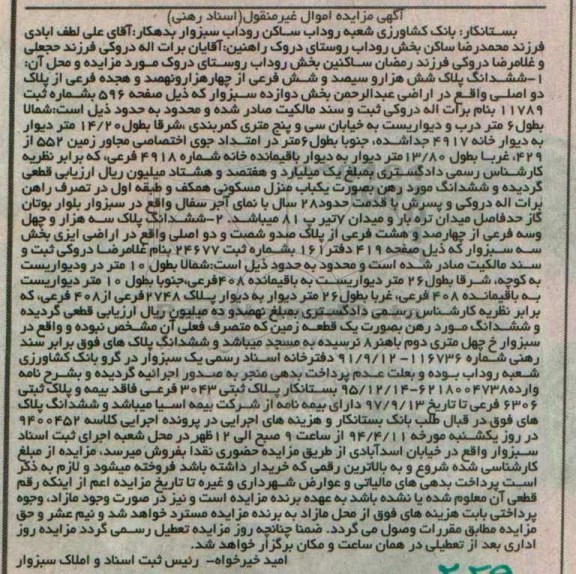 آگهی مزایده اموال غیرمنقول(اسناد رهنی)
بستانکار: بانک کشاورزی شعبه روداب ساکن روداب سبزوار بدهکار:آقای علی لطف ابادی
فرزند محمدرضا ساکن بخش روداب روستای دروک راهنین:آقایان برات اله دروکی فرزند حجعلی
و غلامرضا دروکی فرزند رمضان ساکنین بخش روداب روستای دروک مورد مزایده و محل آن:
۱-ششدانگ پلاک شش هزارو سیصد و شش فرعی از چهارهزارونهصد و هجده فرعی از پلاک
دو اصلی واقع در اراضی عبدالرحمن بخش دوازده سبزوار که ذیل صفحه ۵۹۶ بشماره ثبت
۱۱۷۸۹ بنام برات اله دروکی ثبت و سند مالکیت صادر شده و محدود به حدود ذیل است:شمالا
بطول۶ متر درب و دیواریست به خیابان سی و پنج متری کمربندی ،شرقا بطول۱۴/۲۰ متر دیوار
به دیوار خانه ۴۹۱۷ جداشده، جنوبا بطول۶متر در امتداد جوی اختصاصی مجاور زمین ۵۵۲ از
۴۲۹، غربا بطول ۱۳/۸۰متر دیوار به دیوار باقیمانده خانه شماره ۴۹۱۸ فرعی، که برابر نظریه
کارشناس رسمی دادگستری بمبلغ یک میلیارد و هفتصد و هشتاد میلیون ریال ارزیابی قطعی
گردیده و ششدانگ مورد رهن بصورت یکباب منزل مسکونی همکف و طبقه اول در تصرف راهن
برات اله دروکی و پسرش با قدمت حدود۲۸ سال با نمای آجر سفال واقع در سبزوار بلوار بوتان
گاز حدفاصل میدان تره بار و میدان ۷تیر پ ۸۱ میباشد. ۲-ششدانگ پلاک سه هزار و چهل
وسه فرعی از چهارصد و هشت فرعی از پلاک صدو شصت و دو اصلی واقع در اراضی ایزی بخش
سه سبزوار که ذیل صفحه ۴۱۹ دفتر۱۶۱ بشماره ثبت ۲۴۶۷۷ بنام غلامرضا دروکی ثبت و
سند مالکیت صادر شده است و محدود به حدود ذیل است:شمالا بطول ۱۰ متر در ودیواریست
به کوچه، شرقا بطول۲۶ متر دیواریست به باقیمانده ۴۰۸فرعی،جنوبا بطول ۱۰ متر دیواریست
به باقیمانده ۴۰۸ فرعی، غربا بطول۲۶ متر دیوار به دیوار پلاک ۲۷۴۸فرعی از۴۰۸ فرعی، که
برابر نظریه کارشناس رسمی دادگستری بمبلغ نهصدو ده میلیون ریال ارزیابی قطعی گردیده
و ششدانگ مورد رهن بصورت یک قطعه زمین که متصرف فعلی آن مشخص نبوده و واقع در
سبزوار خ چهل متری دوم باهنر۸ نرسیده به مسجد میباشد و ششدانگ پلاک های فوق برابر سند
رهنی شماره ۱۱۶۷۳۶- ۹۱/۹/۱۲ دفترخانه اسناد رسمی یک سبزوار در گرو بانک کشاورزی
شعبه روداب بوده و بعلت عدم پرداخت بدهی منجر به صدور اجرائیه گردیده و بشرح نامه
وارده۶۲۱۸۰۰۴۷۳۸-۹۵/۱۲/۱۴ بستانکار پلاک ثبتی ۳۰۴۳ فرعی فاقد بیمه و پلاک ثبتی
۶۳۰۶ فرعی تا تاریخ ۹۷/۹/۱۳ دارای بیمه نامه از شرکت بیمه اسیا میباشد و ششدانگ پلاک
های فوق در قبال طلب بانک بستانکار و هزینه های اجرایی در پرونده اجرایی کلاسه ۹۴۰۰۴۵۲
در روز یکشنبه مورخه ۹۴/۴/۱۱ از ساعت ۹ صبح الی ۱۲ظهر در محل شعبه اجرای ثبت اسناد
سبزوار واقع در خیابان اسدآبادی از طریق مزایده حضوری نقدا بفروش میرسد، مزایده از مبلغ
کارشناسی شده شروع و به بالاترین رقمی که خریدار داشته باشد فروخته میشود و لازم به ذکر
است پرداخت بدهی های مالیاتی و عوارض شهرداری و غیره تا تاریخ مزایده اعم از اینکه رقم
قطعی آن معلوم شده یا نشده باشد به عهده برنده مزایده است و نیز در صورت وجود مازاد، وجوه
پرداختی بابت هزینه های فوق از محل مازاد به برنده مزایده مسترد خواهد شد و نیم عشر و حق
مزایده مطابق مقررات وصول می گردد. ضمنا چنانچه روز مزایده تعطیل رسمی گردد مزایده روز
اداری بعد از تعطیلی در همان ساعت و مکان برگزار خواهد شد.
امید خیرخواه- رئیس ثبت اسناد و املاک سبزوار